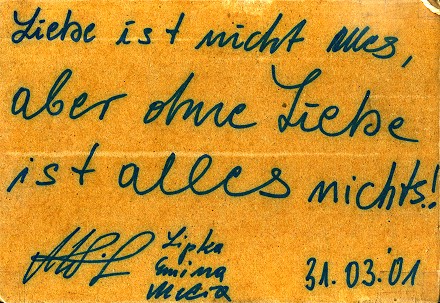 Liebe ist nicht alles,
aber ohne Liebe
ist alles nichts!
Lipka
31.03.'01